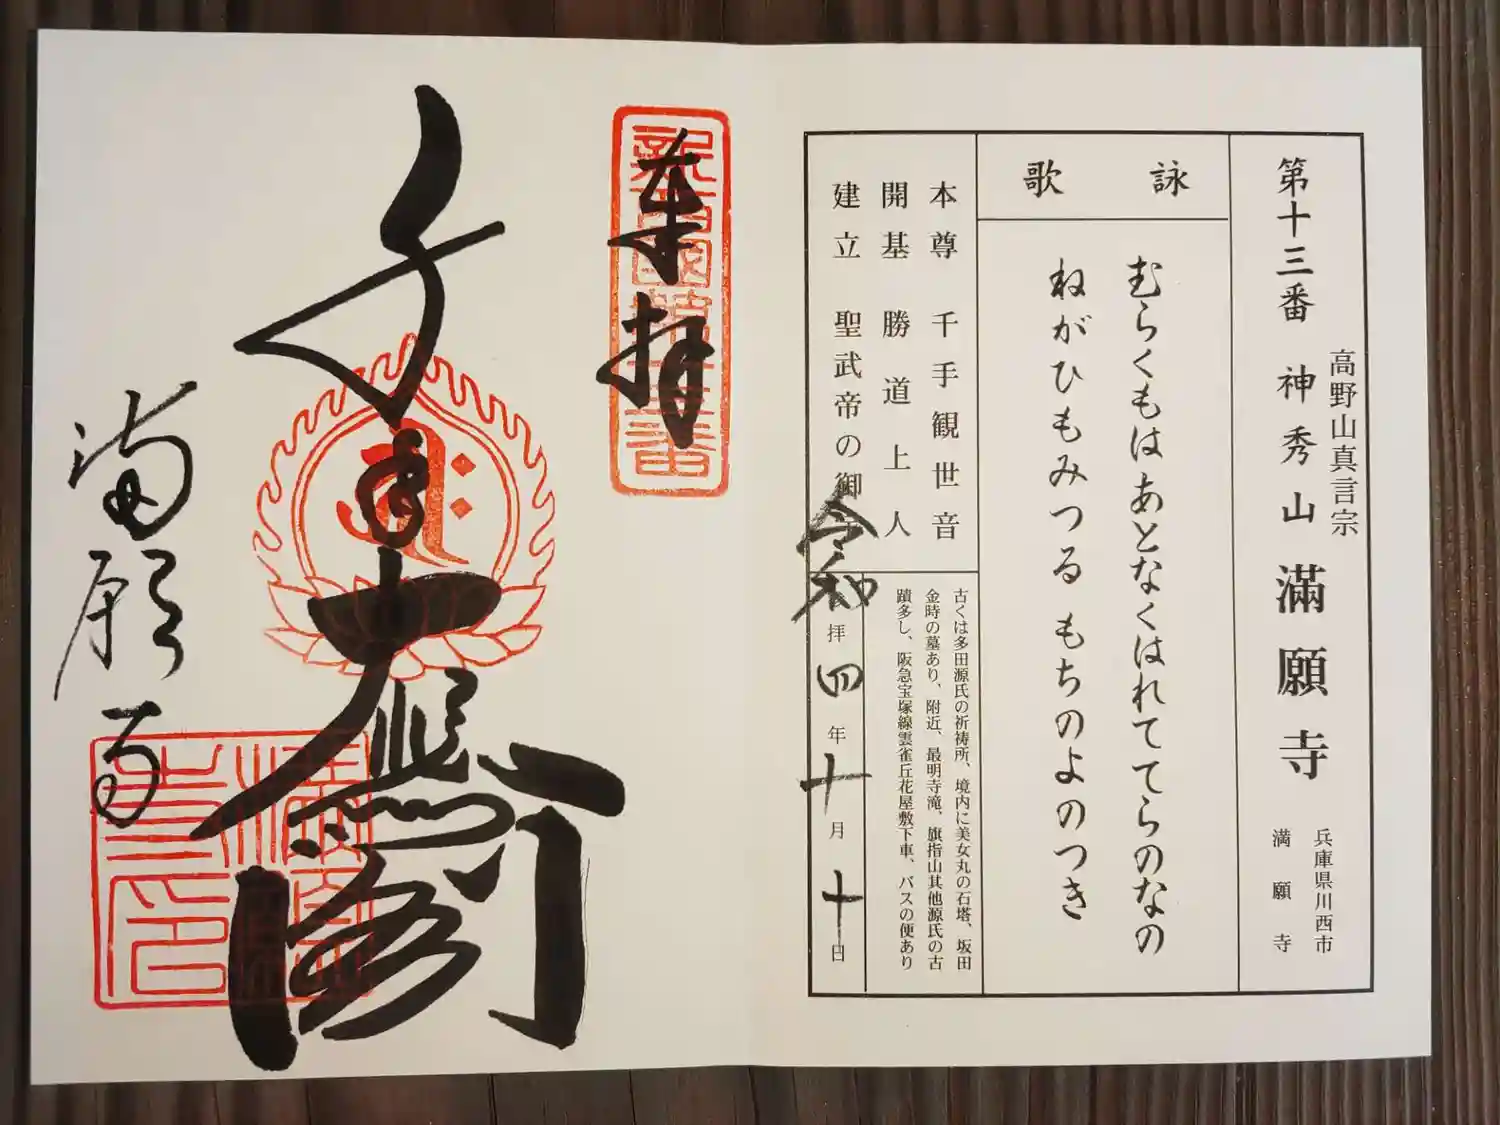 高野山真言宗
第十三番 神秀山 滿願寺
兵庫県川西市
満願寺
詠歌
むらくもはあとなくはれててらのなの
ねがひもみつる もちのよのつき
本尊 千手観世音
開基 勝道上人
建立 聖武帝の御
古くは多田源氏の祈祷所、境内に美女丸の石塔、坂田
金時の墓あり、附近、最明寺滝、旗指山其他源氏の古
蹟多し、阪急宝塚線雲雀丘花屋敷下車、バスの便あり
令和四年十月十日
拝
奉拝
新西國第十三番
千手大悲閣
満願寺